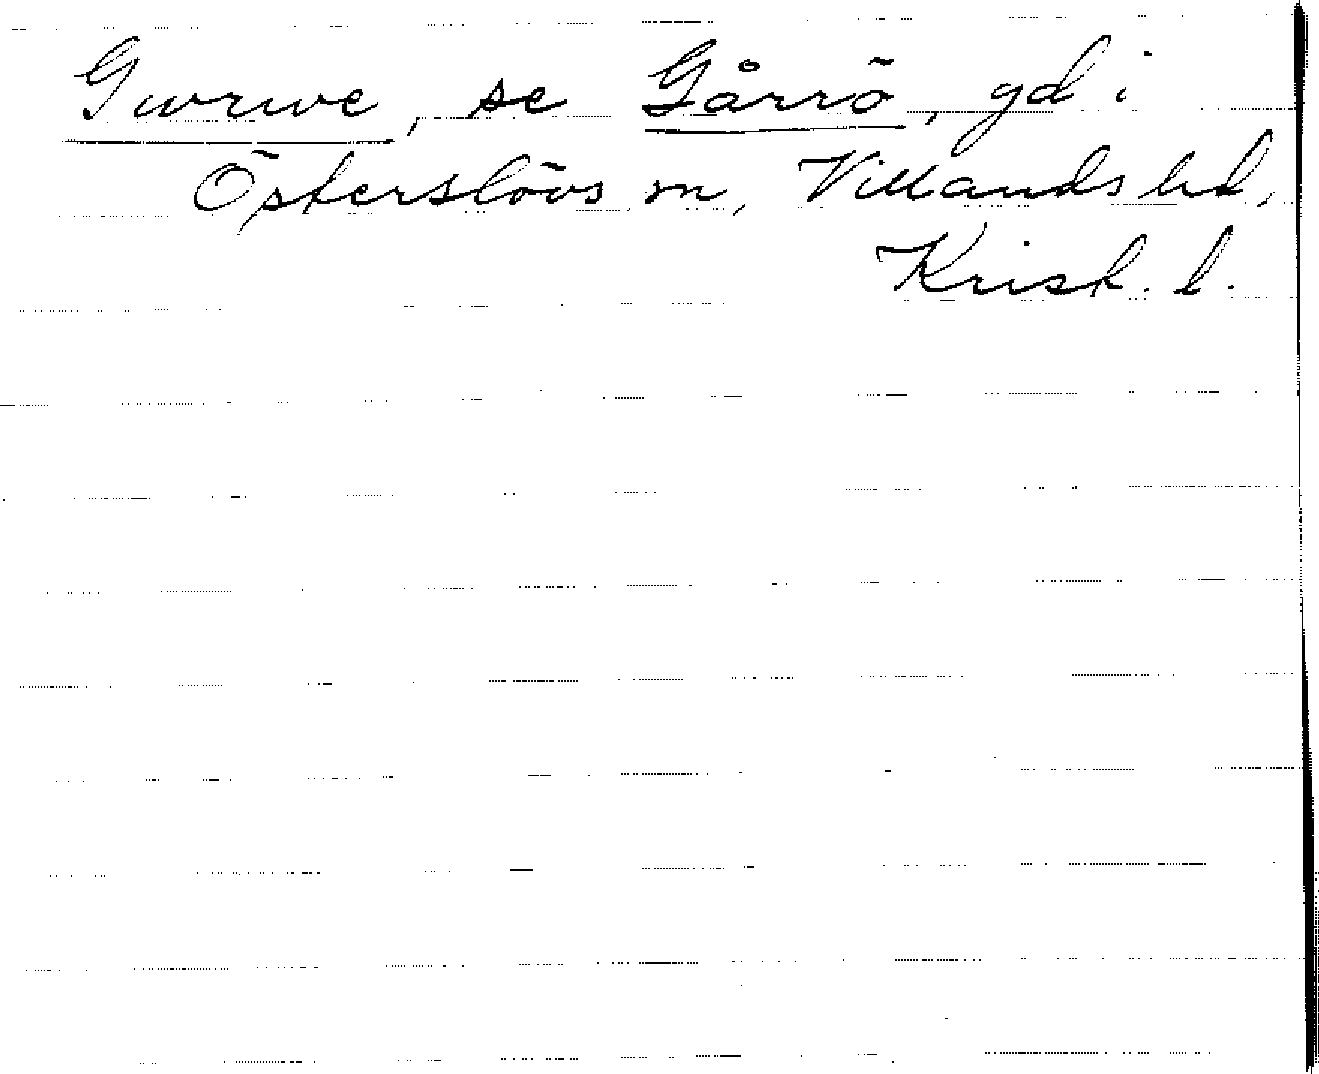 Gwrwe, se Gårrö, gd i
Österslövs sn, Villands hd,
Krist. l.